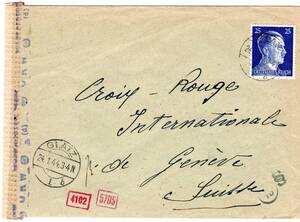 25 25
DEUTSCHES REICH
Croix-Rouge
Internationale
de Genève
Suisse
GLATZ
24.1.44.3-4N
1 b
4102 5705